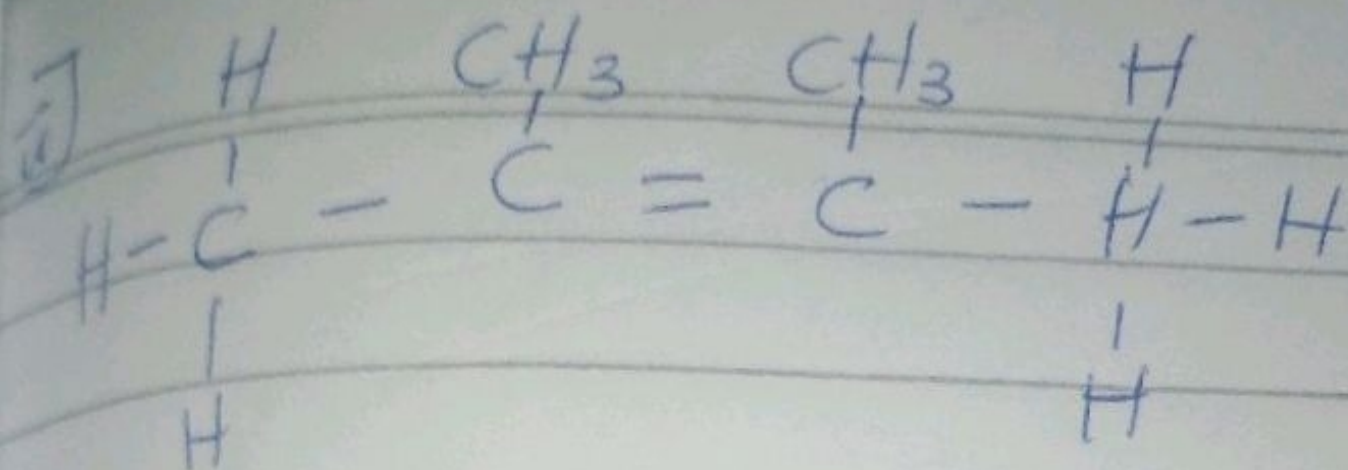 ii] H CH3 CH3 H
H - C - C = C - H - H
H H